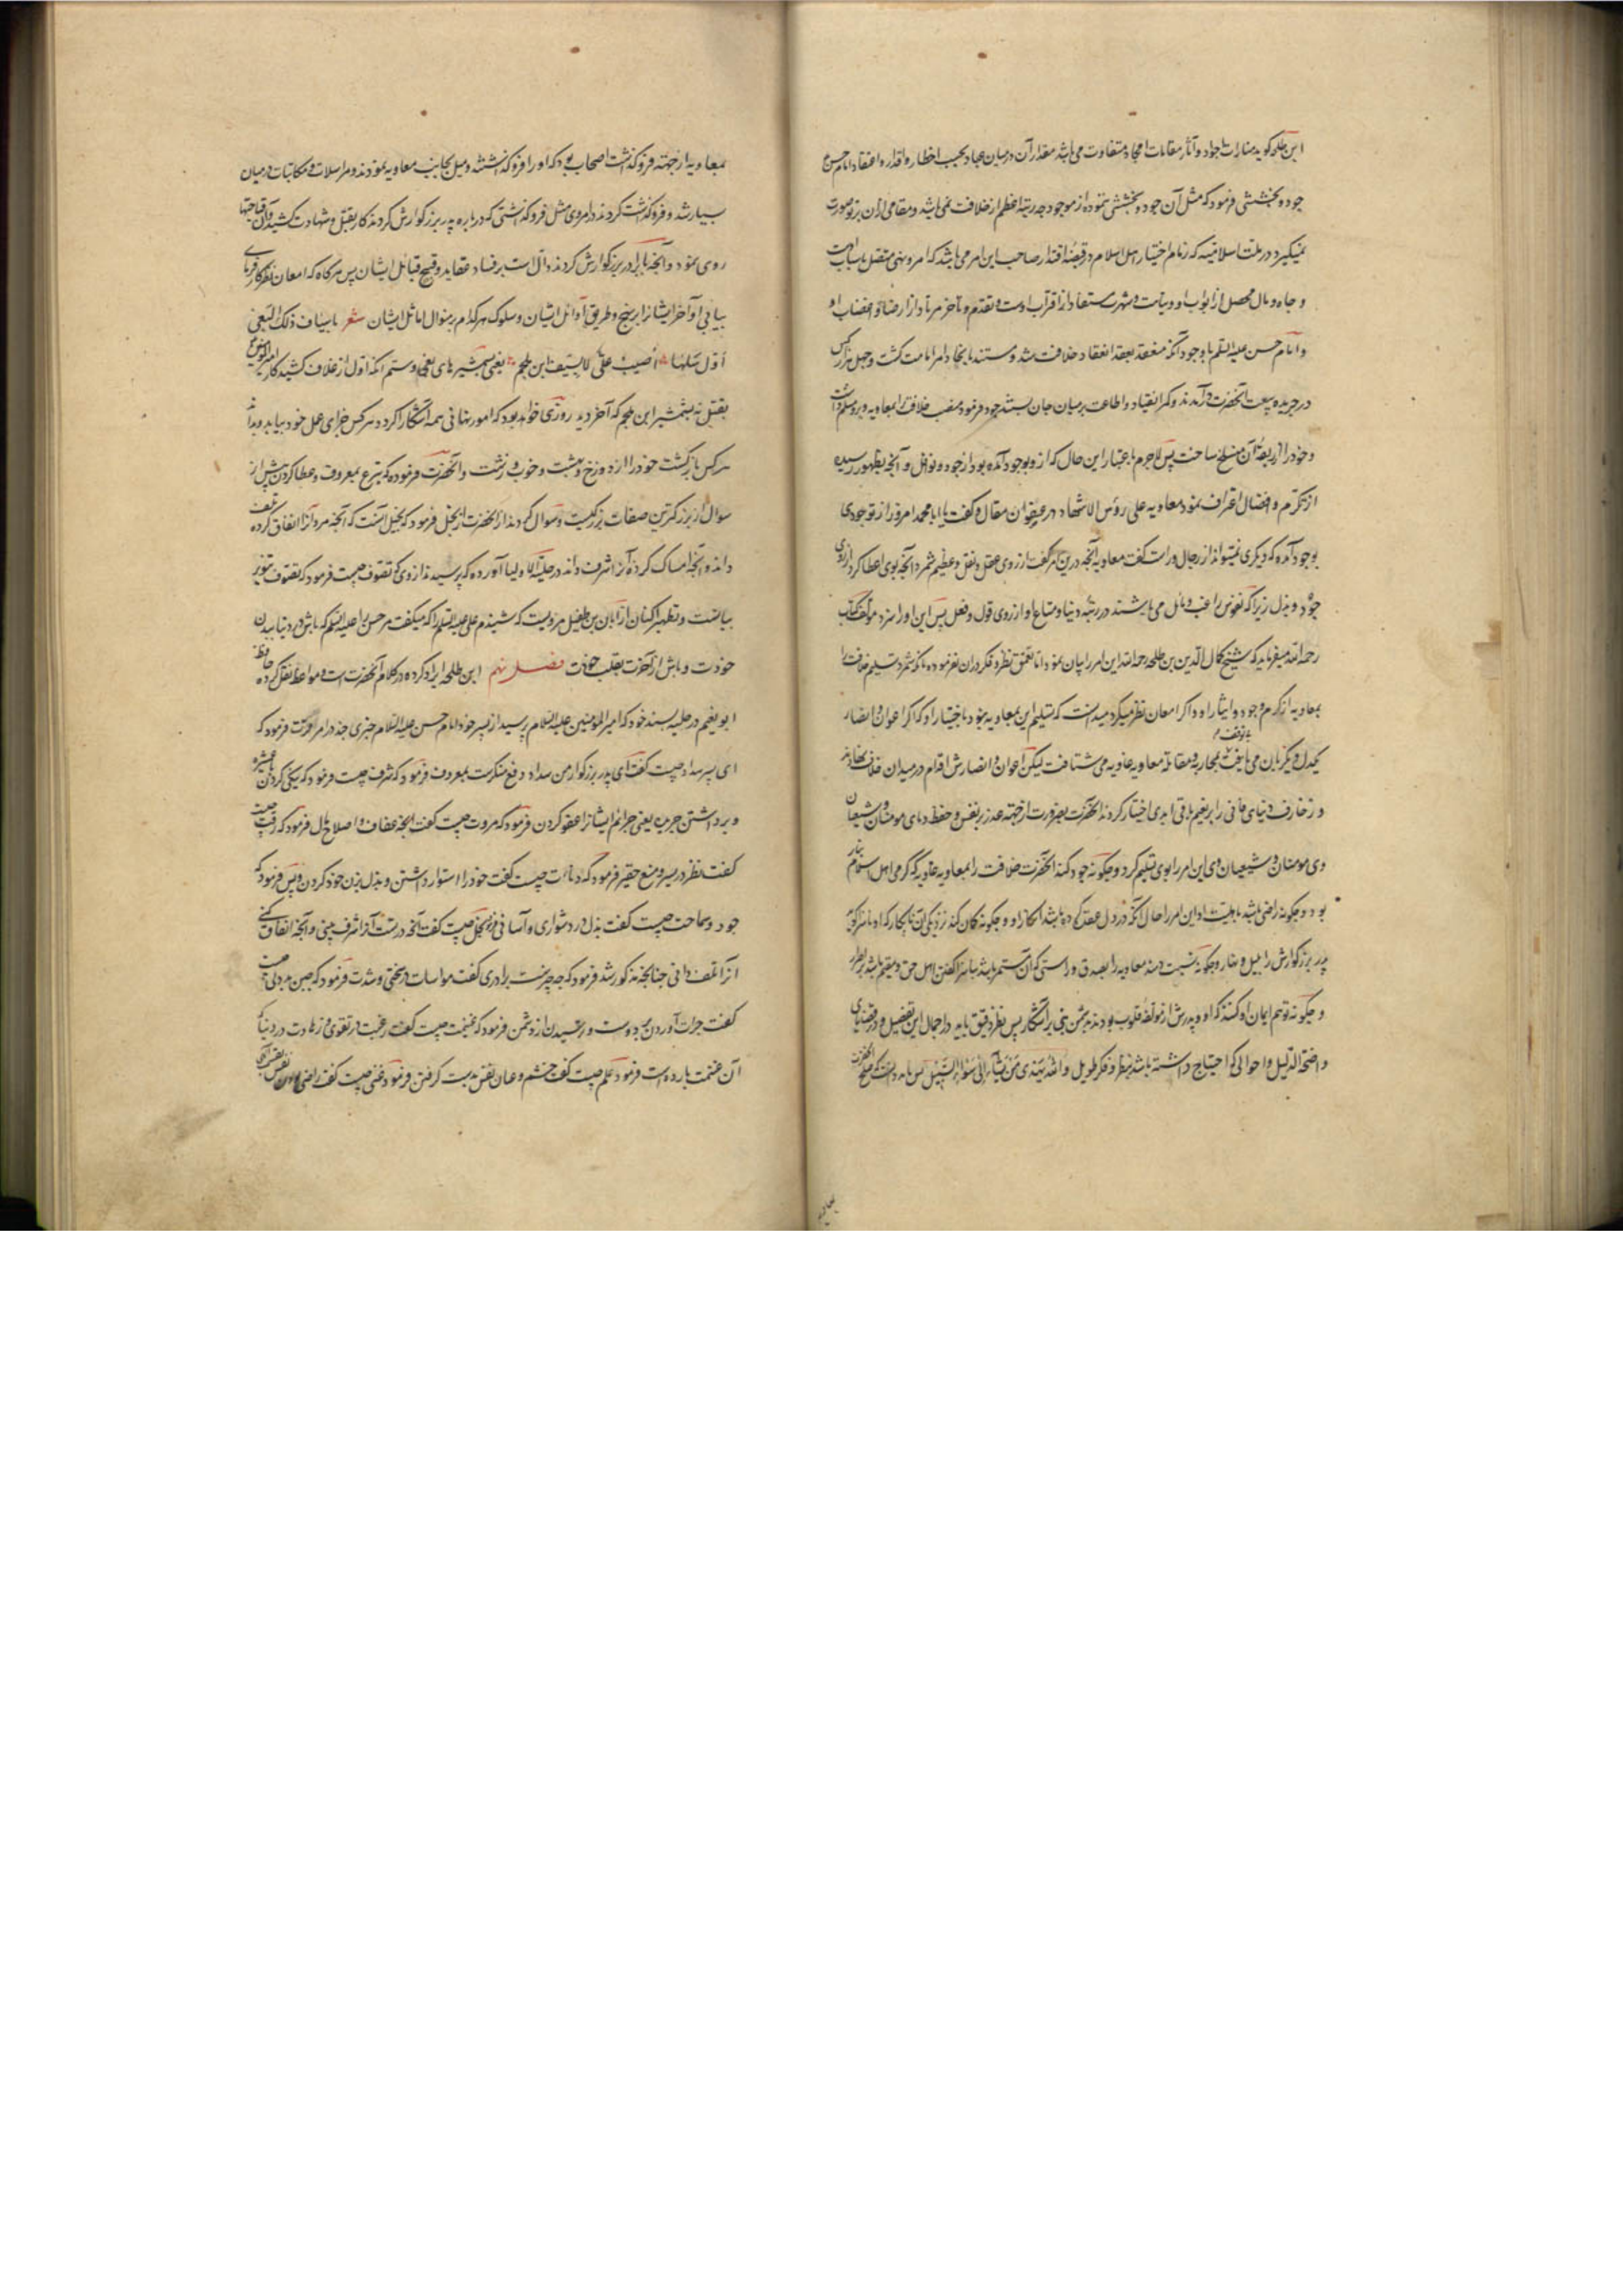 این طلحه گوید منارات اجواد و آثار مقامات امجاد متفاوت می باشد مقدار آن در میان عباد بحسب اخطار و اقدار و اعتقاد امام حسن
جود و بخششی فرمود که مثل آن جود و بخششی ننموده از موجود چه رتبه اعظم از خلافت نمی باشد و مقامی ازان برتر صورت
نمیگیرد در ملت اسلامیه که زمام اختیار اهل اسلام در قبضه اقتدار صاحب این امر می باشد که امر و نهی متصل باسباب اوست
و جاه و مال محصل از ابواب او و نباهت و شهرت مستفاد از اقتراب اوست و تقدم و تأخر مرتاد از ارضا و اغضاب او
و امام حسن علیه السلم با وجود آنکه منعقد بعقد انعقاد خلافت شد و مستند بایجاد امر امامت گشت و چهل هزار کس
در جریده بیعت آنحضرت درآمدند و کمر انقیاد و اطاعت بر میان جان بستند جود فرمود منصب خلافت را بمعاویه و برو مسلم داشت
و خود را از ربقه آن منسلخ ساخت پس لاجرم باعتبار این حال که ازو بوجود آمده بود از جود و نوافل و آنچه بظهور رسیده
از تکرم و افضال اعتراف نمود معاویه علی رؤس الاشهاد در عنفوان مقال و گفت یا ابا محمد امروز از تو جودی
بوجود آمده که دیگری نمیتواند از رجال و راست گفت معاویه آنچه درین امر گفت از روی عقل و نقل و عظیم شمرد آنچه بوی اعطا کرد از روی
جود و بذل زیرا که نفوس راغب و مائل می باشند در رتبه دنیا و متاع او از روی قول و فعل پس این او را سزد مولف کتاب
رحمه الله میفرماید که شیخ کمال الدین بن طلحه رحمه الله این امر را بیان نمود اما تعمق نظر و فکر دران نفرموده بآنکه شمرد تسلیم خلافت را
بمعاویه از کرم و جود و ایثار او و اگر امعان نظر میکرد میدانست که تسلیم این بمعاویه نبود باختیار او که اگر اعوان و انصار
یکدل و یکزبان می یافت بی توقف بمحاربه و مقاتله معاویه غاویه می شتافت لیکن اعوان و انصارش اقدام در میدان خلاف نهادند
و زخارف دنیای فانی را بر نعیم باقی ابدی اختیار کردند آنحضرت بضرورت از جهة حذر بر نفس و حفظ دمای مومنان و شیعیان
وی مومنان و شیعیان وی این امر را بوی تسلیم کرد و چگونه جود کند آنحضرت خلافت را بمعاویه غاویه که گرمی اهل اسلام بنار
بود و چگونه راضی باشد باهلیت او این امر را حال آنکه در دل عقد کرده باشد انکار او و چگونه گمان کند نزدیکی آن نابکار که او ناسزا گوید
پدر بزرگوارش را بلیل و نهار و چگونه نسبت دهد معاویه را بصدق و راستی که آن مستمر باشد بناسزا گفتن اهل حق و مقیم باشد بران
و چگونه توهم ایمان او کند که او و پدرش از مولفه قلوب بودند بدشمنی نبی بر آشکار پس نظر دقیق باید در اجمال این تفضیل و در قضیهای
واضحة الدلیل و احوالی که احتیاج داشته باشد بنظر و فکر طویل و الله یهدی من یشاء الی سواء السبیل پس باید دانست که صلح آنحضرت
بمعاویه
بمعاویه از جهة فروگذاشت اصحاب بود که او را فروگذاشتند و میل بجانب معاویه نمودند و مراسلات و مکاتبات در میان
بسیار شد و فروگذاشت کردند در امر وی مثل فروگذاشتی که درباره پدر بزرگوارش کردند که کار بقتل و شهادت کشید و آن قباحتها
روی نمود و آنچه با برادر بزرگوارش کردند دال است بر فساد عقاید و قبیح قبائل ایشان پس هرگاه که امعان نظر کار فرمای
بیابی اواخر ایشانرا بر نهج و طریق اوائل ایشان و سلوک هرکدام بر منوال اماثل ایشان شعر باسیاف ذلک البغی
اول سلها اصیب علی لا بسیف ابن ملجم یعنی بشمشیرهای بغی و ستم آنکه اول از غلاف کشید کار امیرالمومنین
بقتل نه بشمشیر ابن ملجم که آخر دید روزی خواهد بود که امور نهانی همه آشکارا گردد هرکس جزای عمل خود بیابد و بداند
هرکس بازگشت خود را از دوزخ و بهشت و خوب و زشت و آنحضرت فرموده که تبرع بمعروف و عطا کردن پیش از
سوال از بزرگترین صفات بزرگیست و سوال کردند از آنحضرت از بخل فرمود که بخیل آنست که آنچه مرد آنرا انفاق کرده تلف
داند و آنچه امساک کرده آنرا شرف داند در حلیة الاولیا آورده که پرسیدند از وی که تصوف چیست فرمود که تصوف تنویر
بیانست و تطهیر اکنان از ابان بن طفیل مرویست که شنیدم علی علیه السلم را که میگفت مر حسن را علیه السلم که باش در دنیا ببدن
خودت و باش از آخرت بقلب خودت فصل نهم ابن طلحه ایراد کرده در کلام آنحضرت است و مواعظ نقل کرده حافظ
ابو نعیم در حلیه بسند خود که امیر المومنین علیه السلام پرسید از پسر خود امام حسن علیه السلام چیزی چند در امر مروت فرمود که
ای پسر سداد چیست گفت ای پدر بزرگوار من سداد دفع منکرست بمعروف فرمود که شرف چیست فرمود که نیکی کردن با عشیره
و برداشتن جریره یعنی جرائم ایشانرا عفو کردن فرمود که مروت چیست گفت آنچه عفاف و اصلاح مال فرمود که رقت چیست
گفت نظر در یسیر و منع حقیر فرمود که دنائت چیست گفت خود را استوار داشتن و بذل بزن خود کردن و پس فرمود که
جود و سماحت چیست گفت بذل در دشواری و آسانی فرمود بخل چیست گفت آنچه در دستت آنرا شرف بینی و آنچه انفاق کنی
آنرا تلف دانی چنانچه مذکور شد فرمود که چه چیزست برادری گفت مواسات در سختی و شدت فرمود که جبن و بددلی چیست
گفت جرات آوردن بر دوست و ترسیدن از دشمن فرمود که غنیمت چیست گفت رغبت در تقوی و زهادت در دنیا که
آن غنیمت بارده است فرمود حلم چیست گفت خشم و عنان نفس بدست گرفتن فرمود غنی چیست گفت راضی بودن نفس